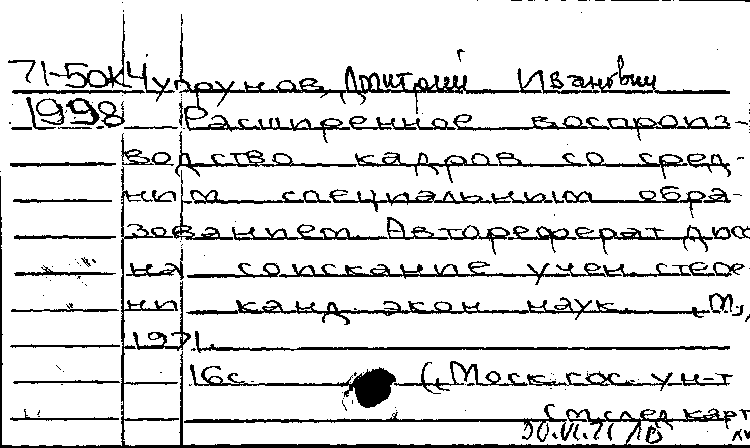 71-50к Чупрунов, Дмитрий Иванович
1998 Расширенное воспроиз-
водство кадров со сред-
ним специальным обра-
зованием. Автореферат дис
на соискание учен. степе-
ни канд. экон. наук. М.,
1971.
16с. (Моск. гос. ун-т
См. след. карт
30.VI.71 ЛВ